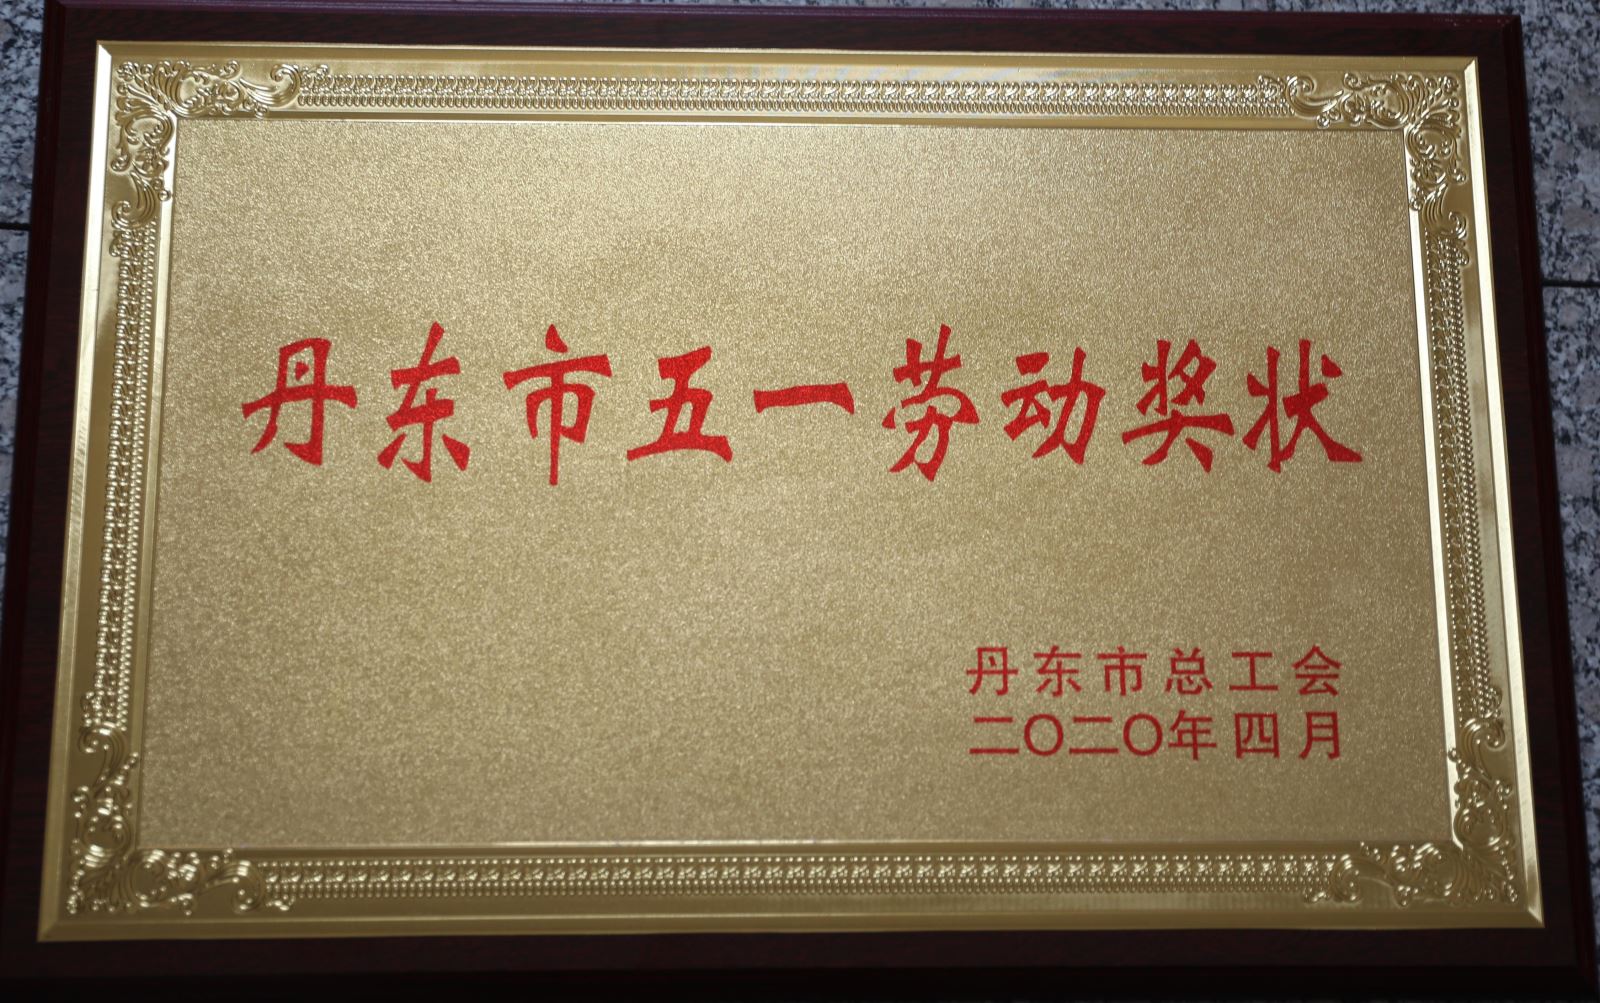 丹东市五一劳动奖状
丹东市总工会
二〇二〇年四月